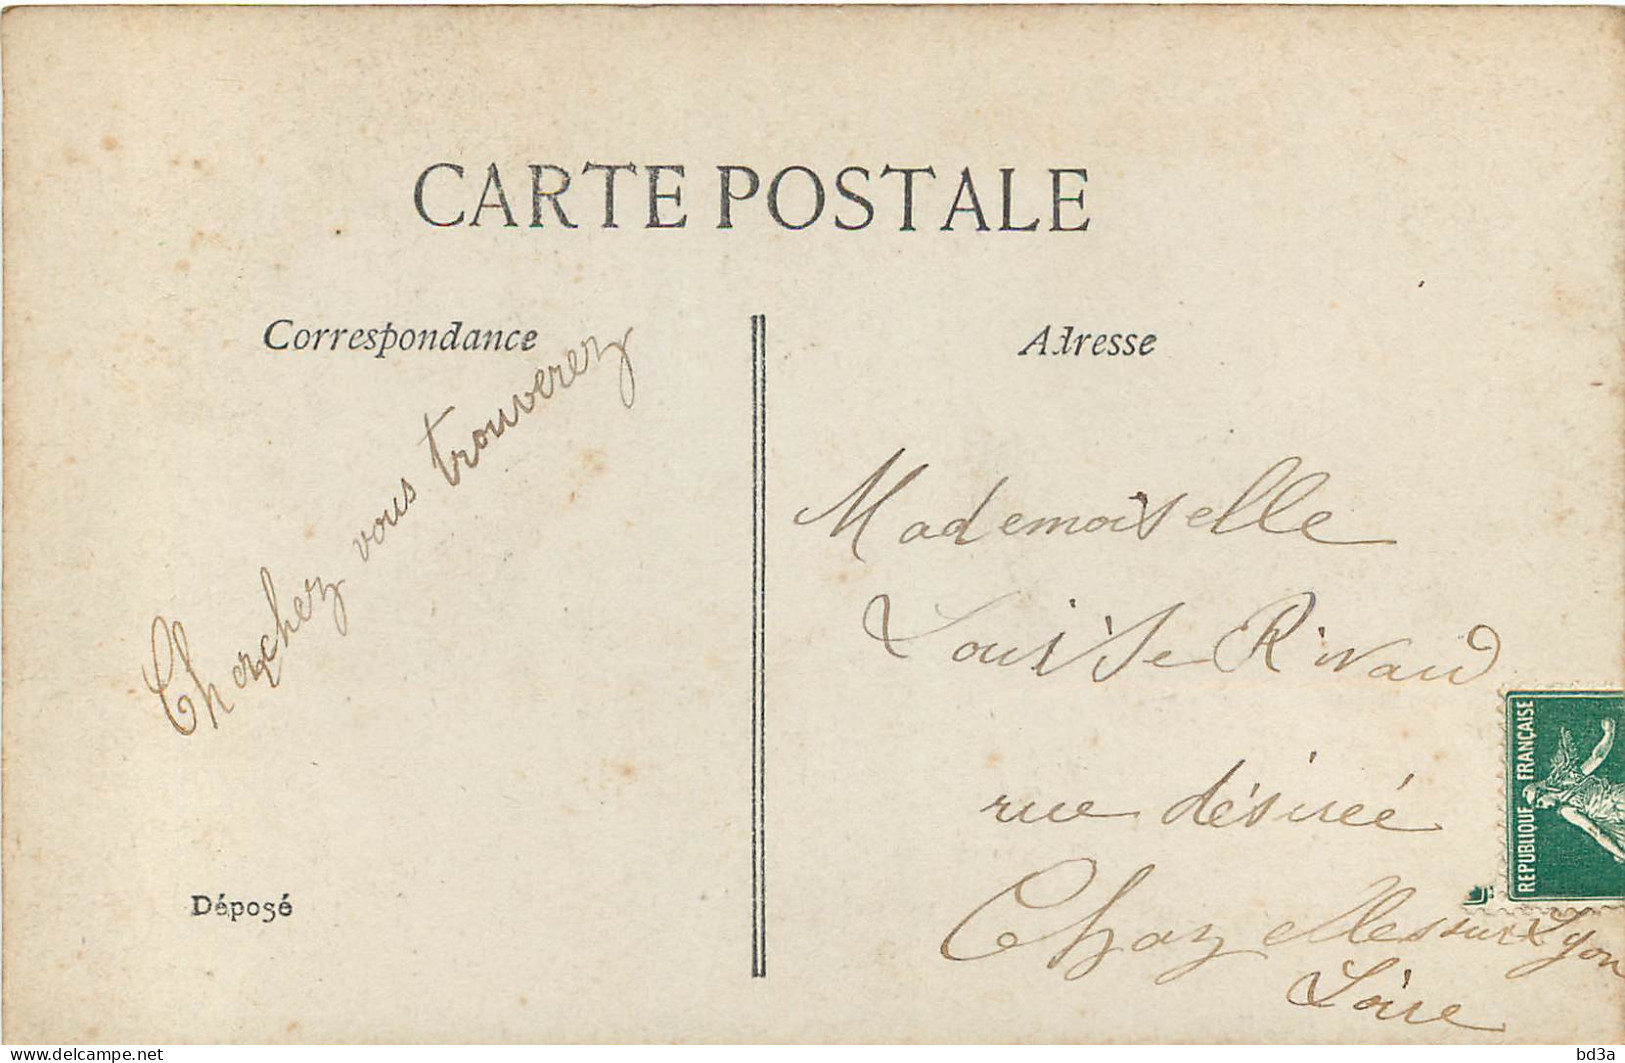 CARTE POSTALE
Correspondance
Adresse
Cherchez vous trouverez
Mademoiselle
Louise Rivaud
rue désirée
Chazelles sur Lyon
Loire
Déposé
REPUBLIQUE FRANÇAISE
delcampe.net
bd3a